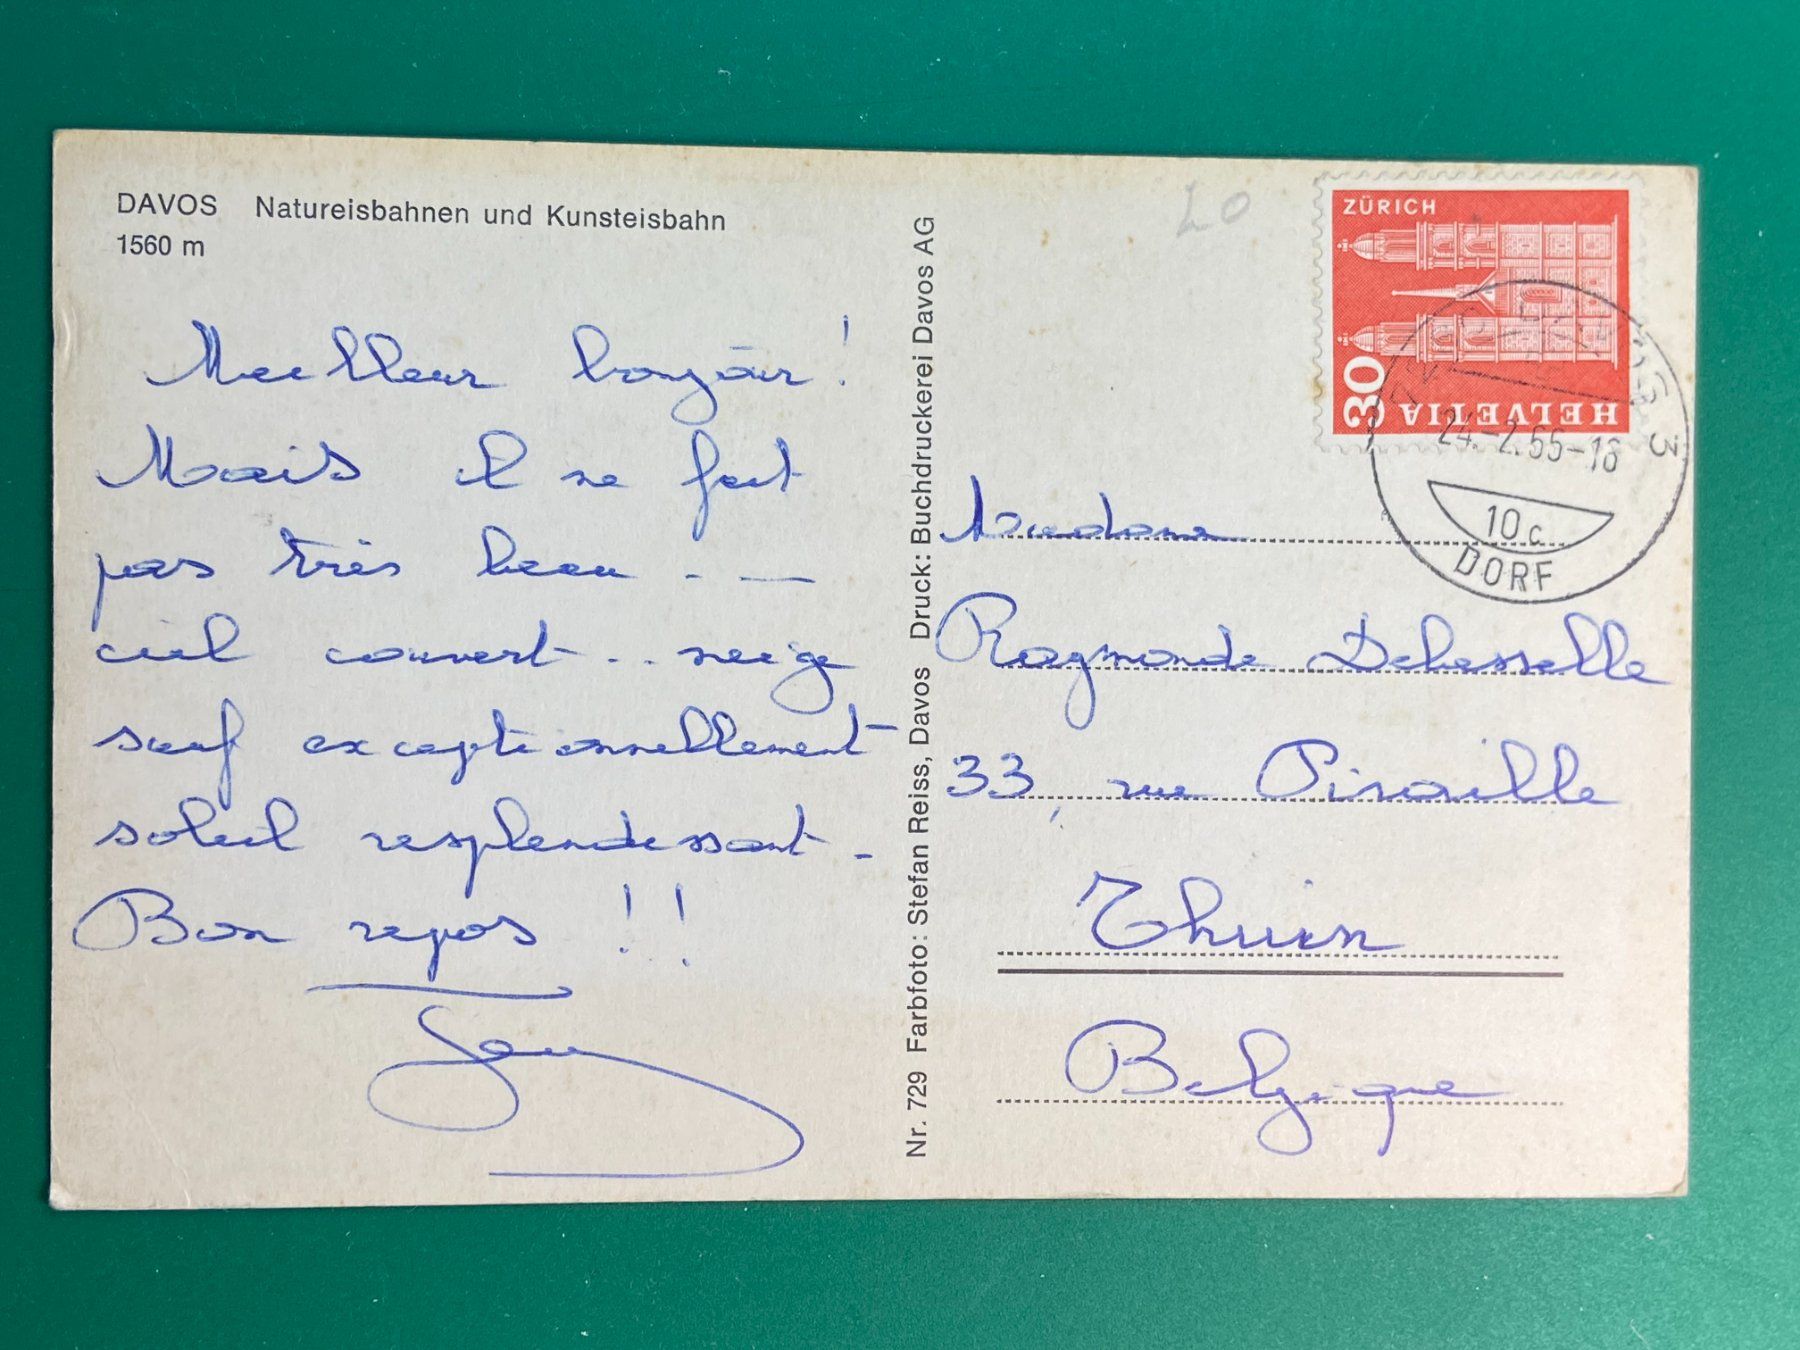 DAVOS Natureisbahnen und Kunsteisbahn
1560 m
Meilleur bonjour !
Mais il ne fait
pas très beau - —
ciel couvert .. neige
sauf exceptionnellement
soleil resplendissant -
Bon repos !!
Nr. 729 Farbfoto: Stefan Reiss, Davos Druck: Buchdruckerei Davos AG
LO
ZÜRICH
30
HELVETIA
24.-2.65-18
3
10 c
DORF
Madame
Raymonde Debesselle
33, rue Pisaille
Thuin
Belgique